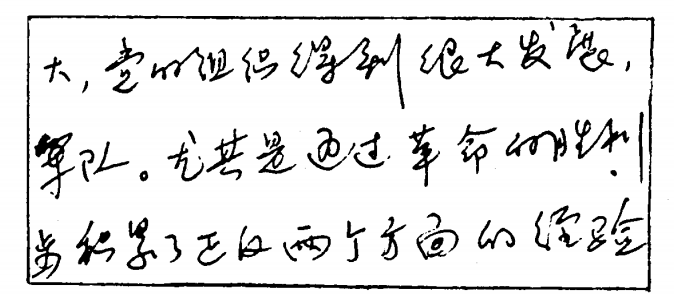 大，党的组织得到很大发展，
军队。尤其是通过革命的胜利
步积累了正反两个方面的经验